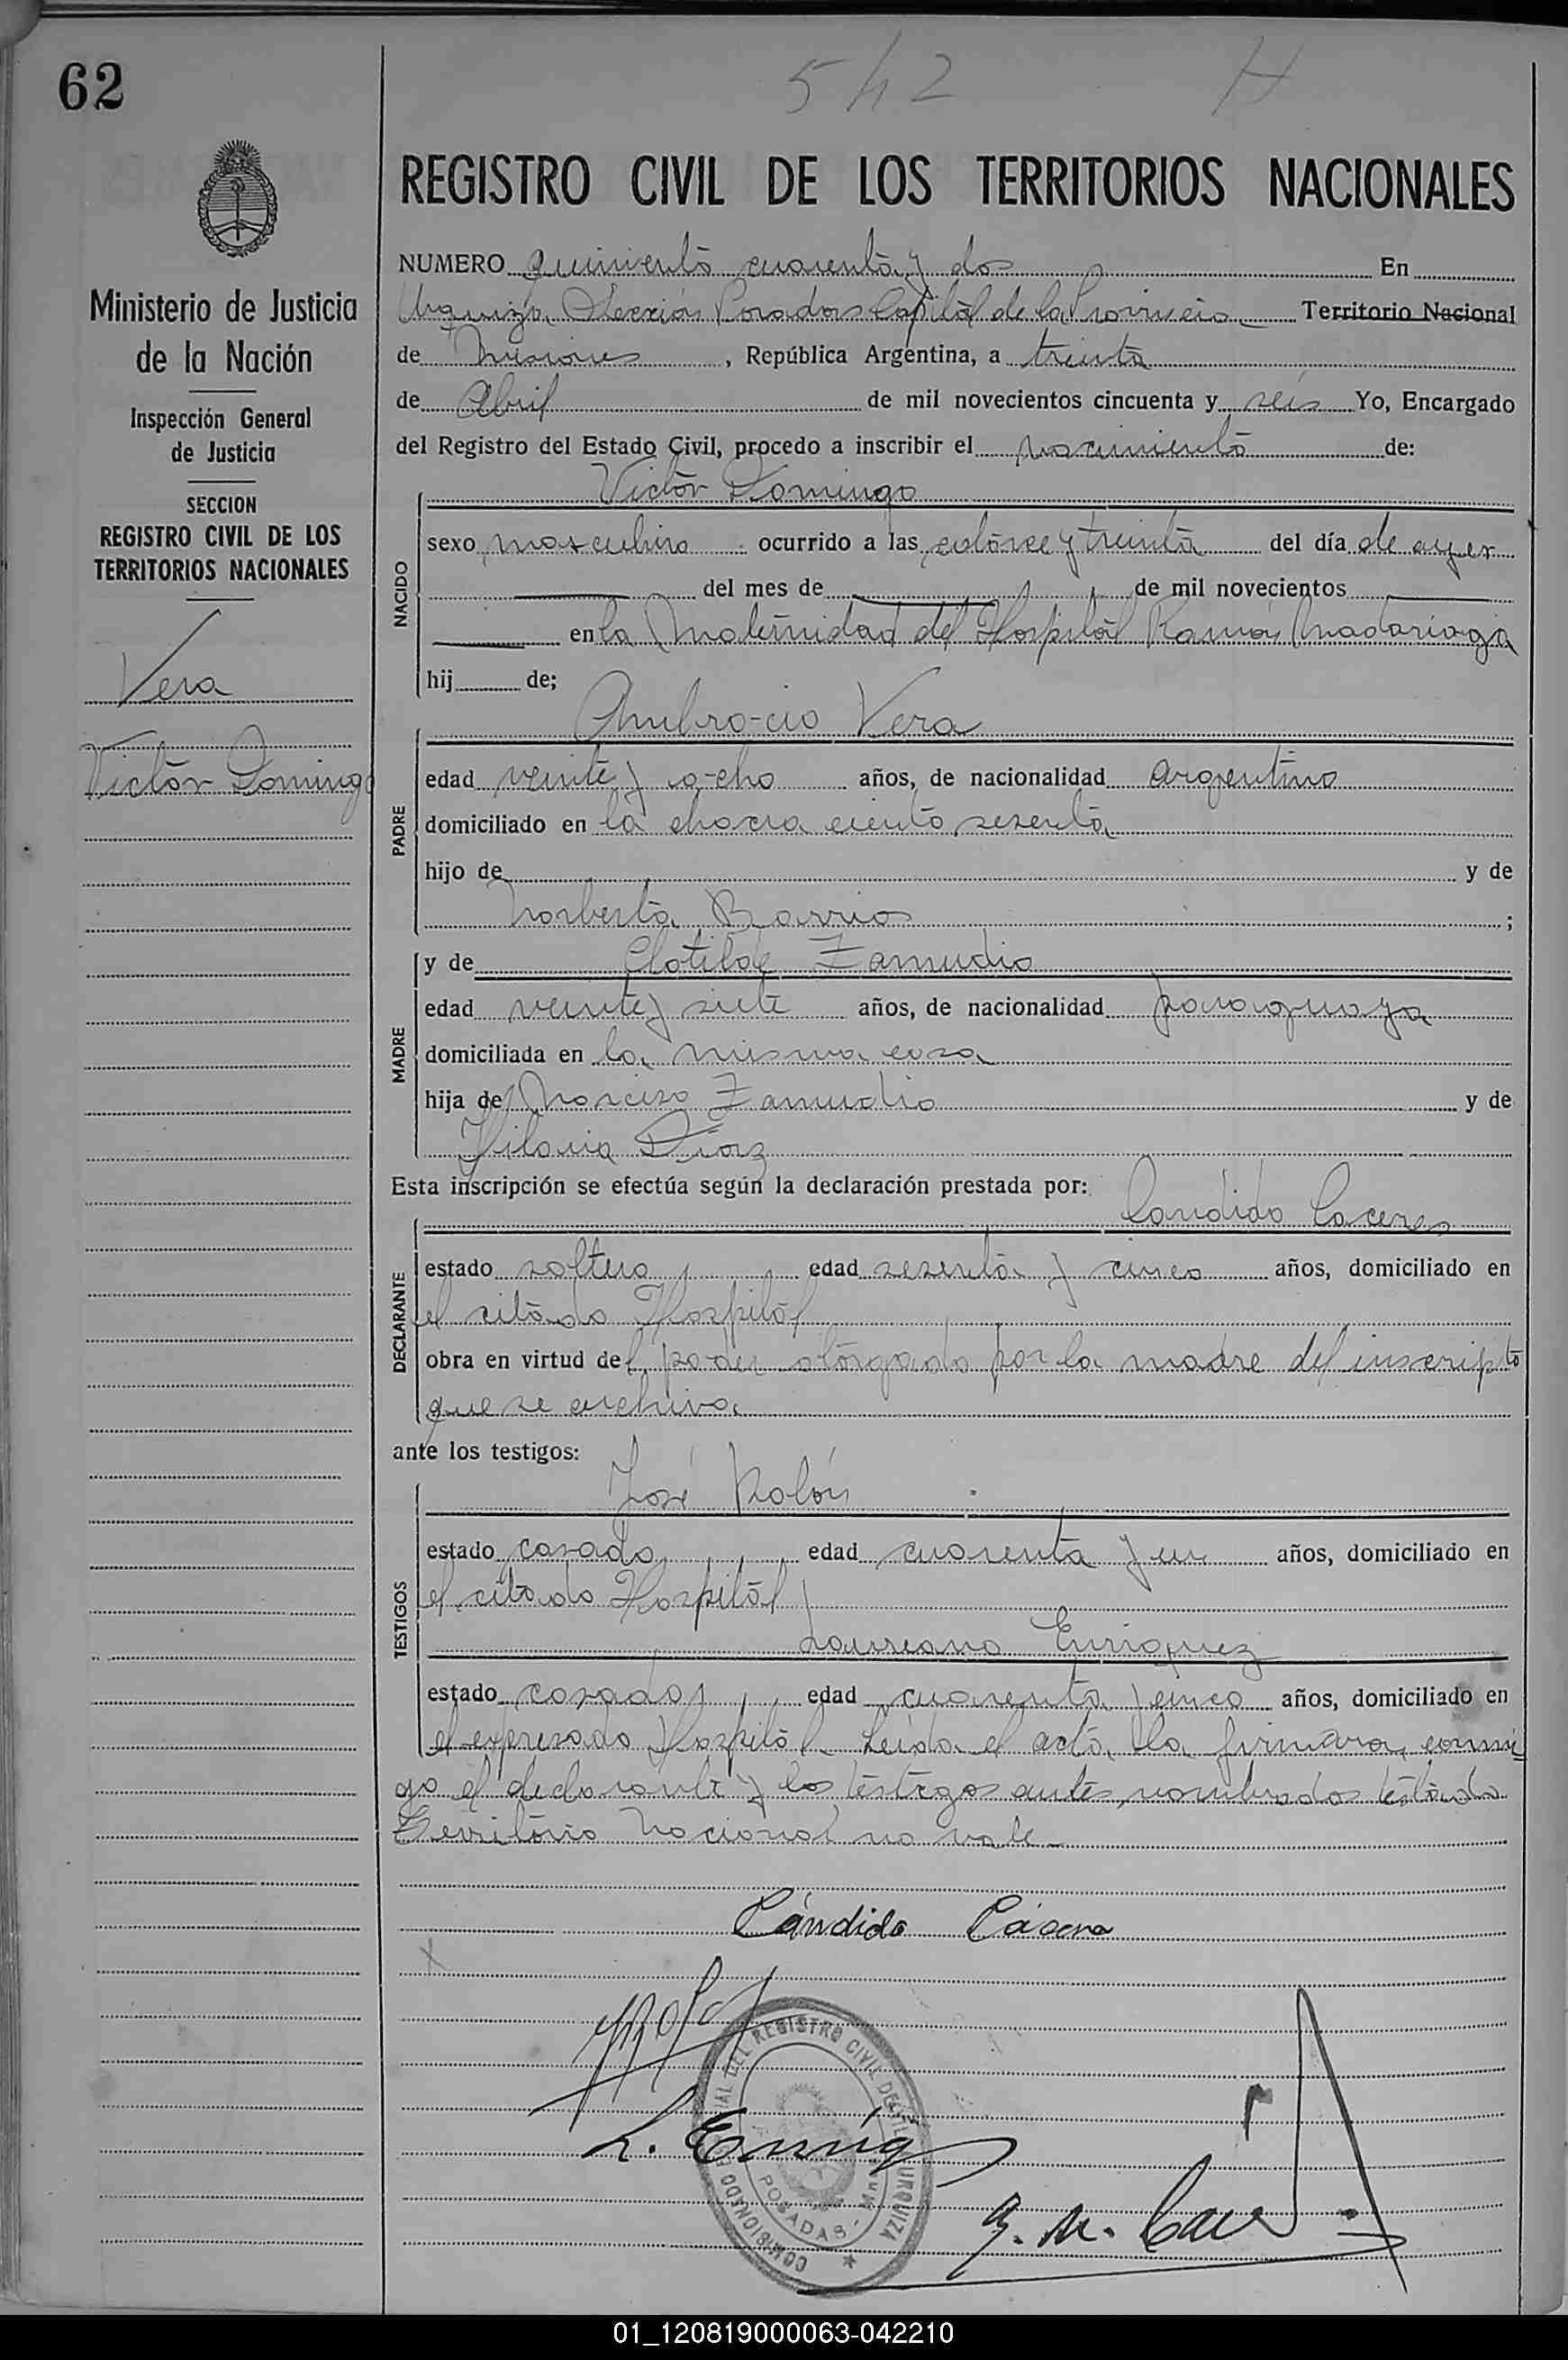 62
542 H
REGISTRO CIVIL DE LOS TERRITORIOS NACIONALES
Ministerio de Justicia
de la Nación
Inspección General
de Justicia
SECCION
REGISTRO CIVIL DE LOS
TERRITORIOS NACIONALES
Vera
Victor Domingo
NUMERO quiniento cuarenta y dos En
Urquiza Sección Posadas Capital de la Provincia Territorio Nacional
de Misiones, República Argentina, a treinta
de Abril de mil novecientos cincuenta y seis Yo, Encargado
del Registro del Estado Civil, procedo a inscribir el nacimiento de:
Victor Domingo
NACIDO
sexo masculino ocurrido a las catorce y treinta del día de ayer
del mes de de mil novecientos
en la Maternidad del Hospital Ramón Madariaga
hij de;
Ambrocio Vera
PADRE
edad veinte y ocho años, de nacionalidad argentino
domiciliado en la chacra ciento sesenta
hijo de y de
Norberta Barrios ;
y de Clotilde Zamudio
MADRE
edad veinte y siete años, de nacionalidad paraguaya
domiciliada en la misma casa
hija de Narciso Zamudio y de
Hilaria Díaz
Esta inscripción se efectúa según la declaración prestada por:
Candido Caceres
DECLARANTE
estado soltero edad sesenta y cinco años, domiciliado en
el citado Hospital
obra en virtud del poder otorgado por la madre del inscripto
que se archiva
ante los testigos:
José Rolón
TESTIGOS
estado casado edad cuarenta y un años, domiciliado en
el citado Hospital
Laureano Enriquez
estado casado edad cuarenta y cinco años, domiciliado en
el expresado Hospital Leida el acta, la firmaron conmi
go el declarante y los testigos antes nombrados testado
Territorio Nacional no vale
Cándido Cáceres
L. Enríq
COMISIONADO REGISTRO CIVIL URQUIZA
POSADAS - Mnes
01_120819000063-042210